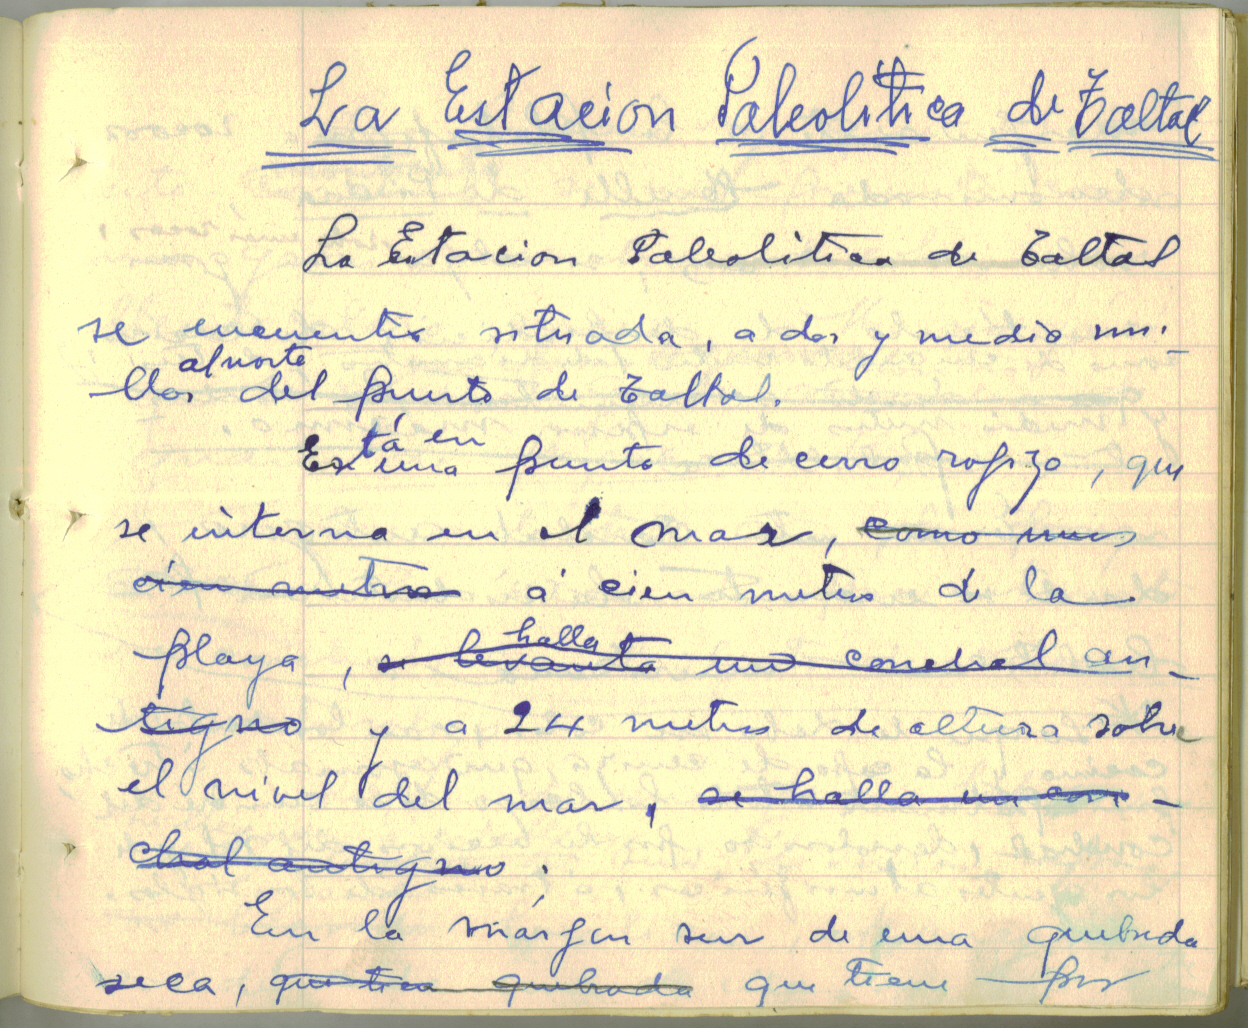 La Estacion Paleolitica de Taltal
La Estacion Paleolitica de Taltal
se encuentra situada, a dos y medio mi-
al norte
llas del puerto de Taltal.
tá en
Es una punta de cerro rojizo, que
se interna en el mar, como unos
cien metros á cien metros de la
halla
playa, se levanta un conchal an-
tiguo y a 24 metros de altura sobre
el nivel del mar, se halla un con-
chal antiguo.
En la márgen sur de una quebrada
seca, que tiene quebrada que tiene por